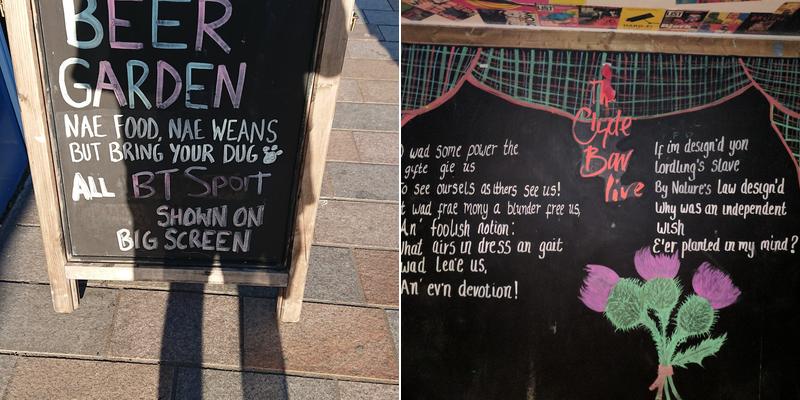 BEER
GARDEN
NAE FOOD, NAE WEANS
BUT BRING YOUR DUG
ALL BT Sport
SHOWN ON
BIG SCREEN
The
Clyde
Bar
live
O wad some power the
giftie gie us
To see oursels as ithers see us!
It wad frae mony a blunder free us,
An' foolish notion:
What airs in dress an gait
wad lea'e us,
An' ev'n devotion!
If im design'd yon
Lordling's slave
By Nature's Law design'd
Why was an independent
wish
E'er planted in my mind?
LIST
LIST